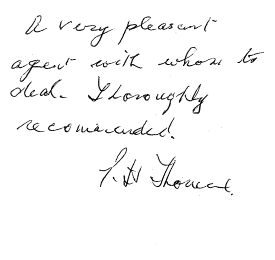 A very pleasant
agent with whom to
deal. Thoroughly
recommended.
P. H Thomas.